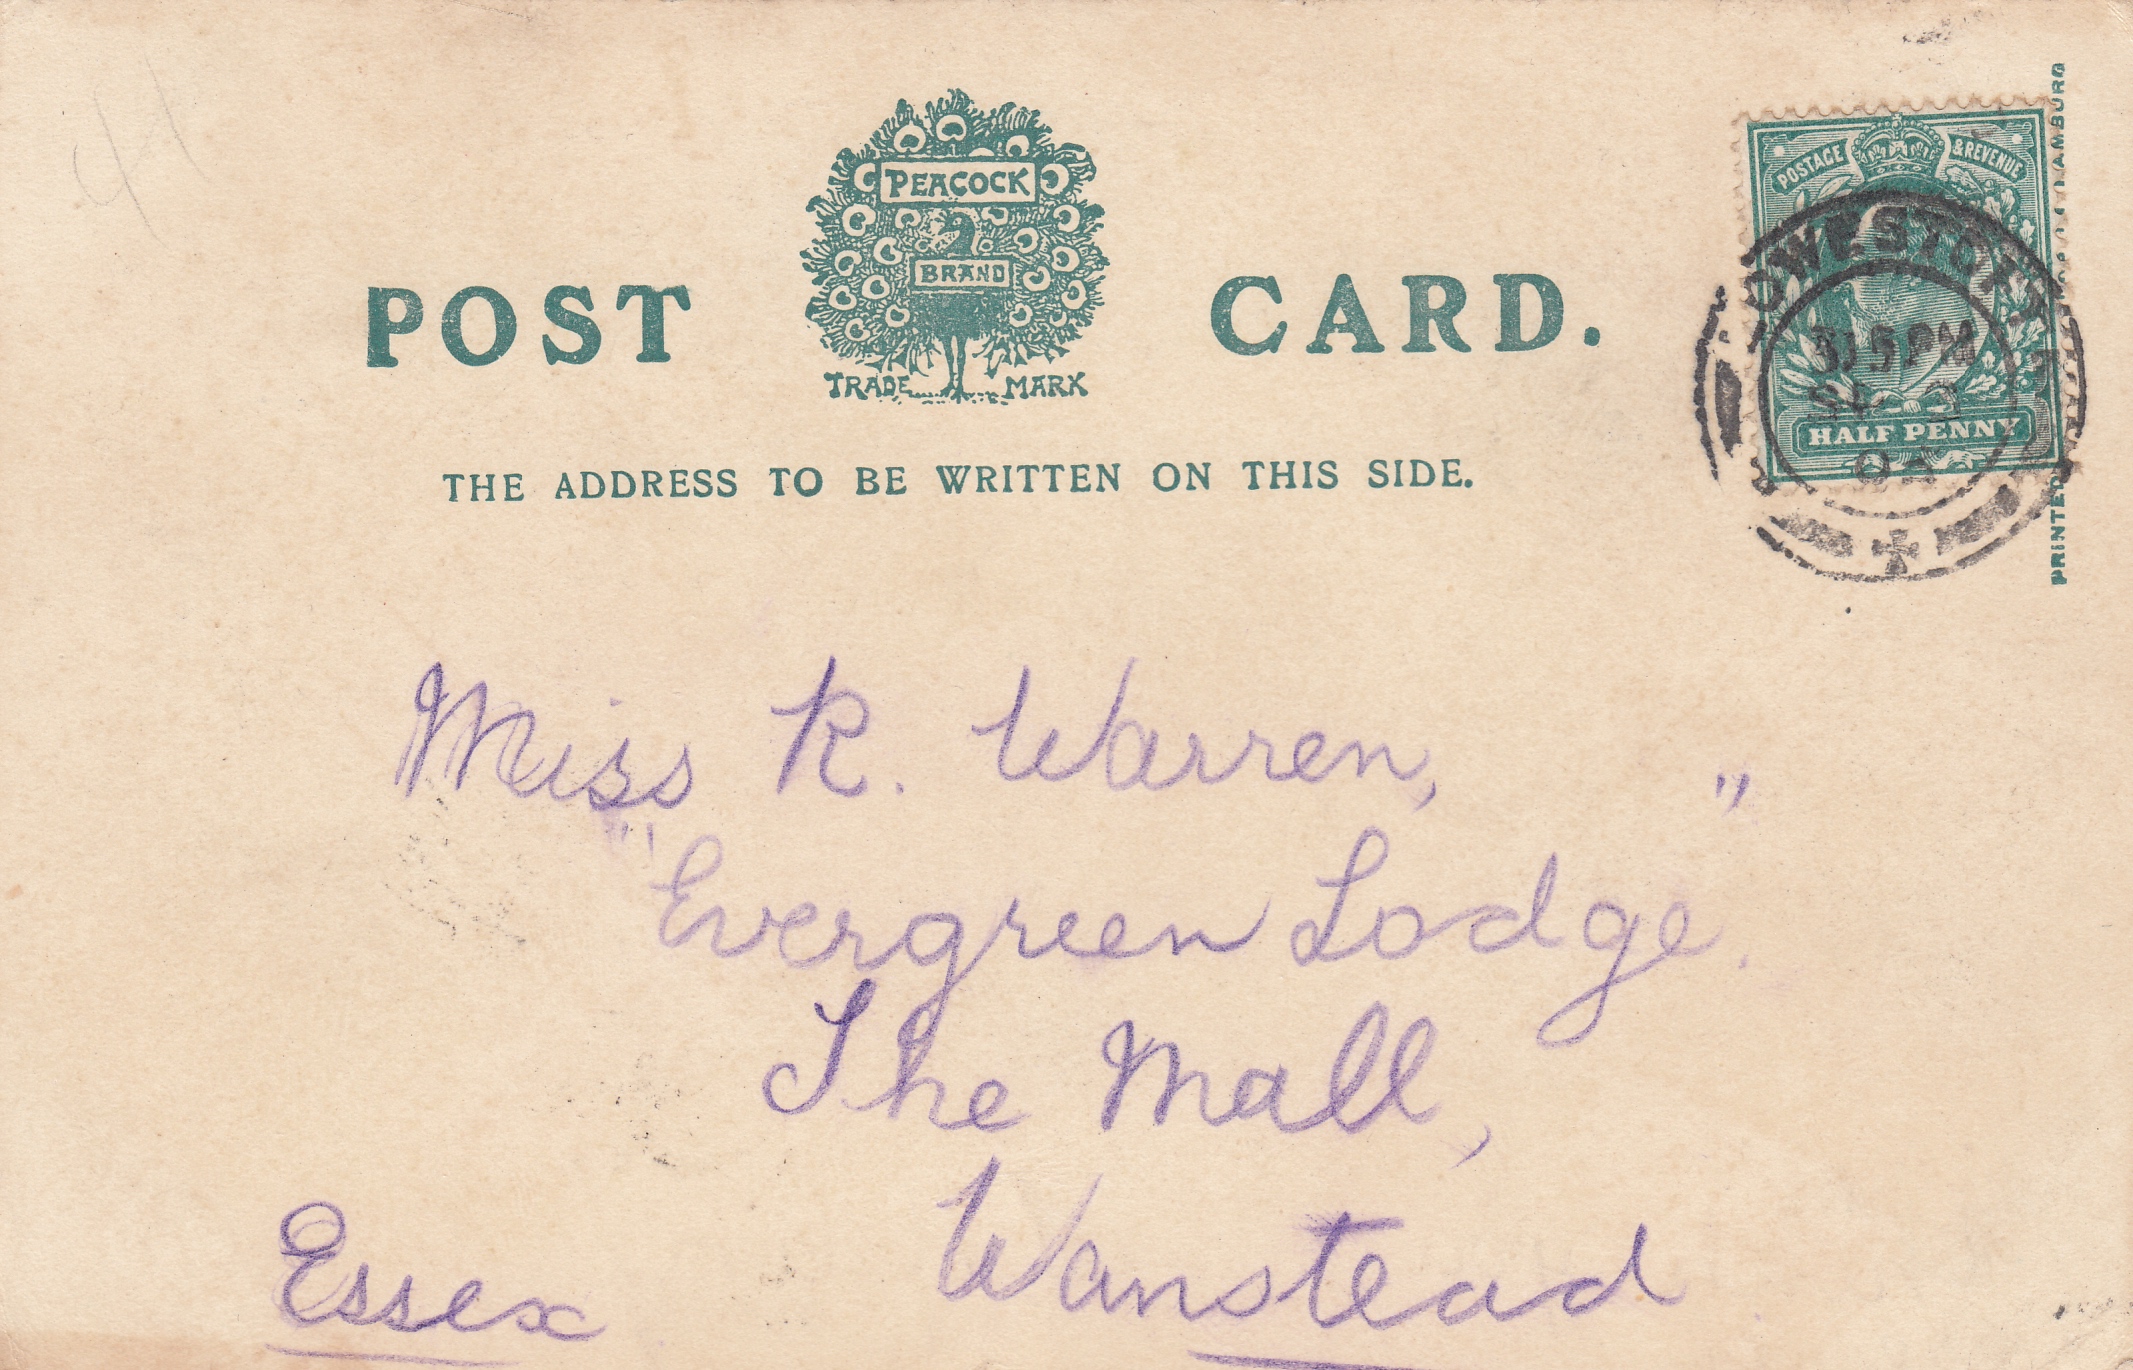 PEACOCK
BRAND
TRADE MARK
POST CARD.
THE ADDRESS TO BE WRITTEN ON THIS SIDE.
POSTAGE & REVENUE
HALF PENNY
LOWESTOFT
PM
PRINTED
Miss R. Warren,
"Evergreen Lodge."
The Mall,
Wanstead
Essex
41